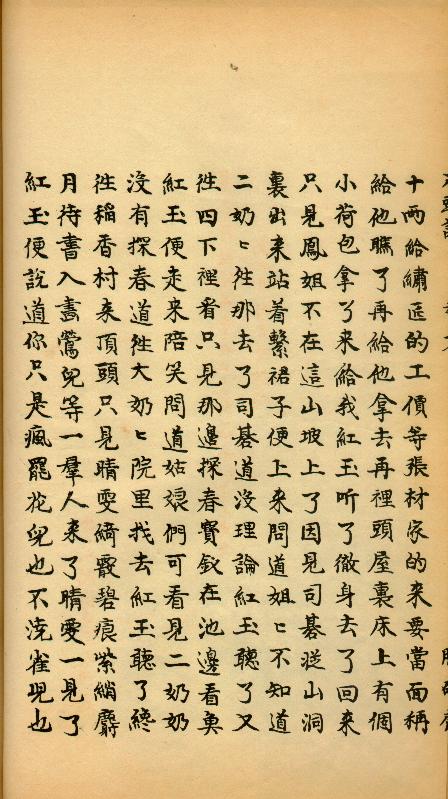 十兩給繡匠的工價等張材家的来要當面稱
給他瞧了再給他拿去再裡頭屋裏床上有個
小荷包拿了来給我紅玉听了徹身去了回来
只見鳳姐不在這山坡上了因見司碁從山洞
裏出来站着繫裙子便上来問道姐〻不知道
二奶〻徃那去了司碁道沒理論紅玉聽了又
徃四下裡看只見那邊探春寳釵在池邊看魚
紅玉便走来陪笑問道姑娘們可看見二奶奶
沒有探春道徃大奶〻院里找去紅玉聽了纔
徃稻香村来頂頭只見晴雯綺霰碧痕紫綃麝
月待書入畫鶯兒等一羣人来了晴雯一見了
紅玉便說道你只是瘋罷花兒也不澆雀兒也